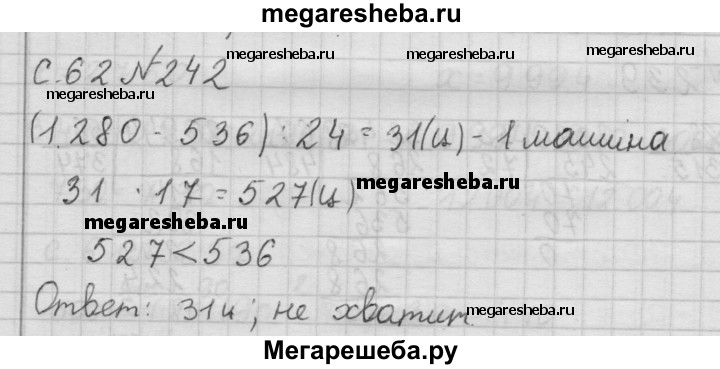 megaresheba.ru
с. 62 №242 megaresheba.ru
megaresheba.ru
(1.280 - 536) : 24 = 31(ц) - 1 машина
31 · 17 = 527(ц) megaresheba.ru
megaresheba.ru
527 < 536
Ответ: 31ц; не хватит. megaresheba.ru
Мегарешеба.ру